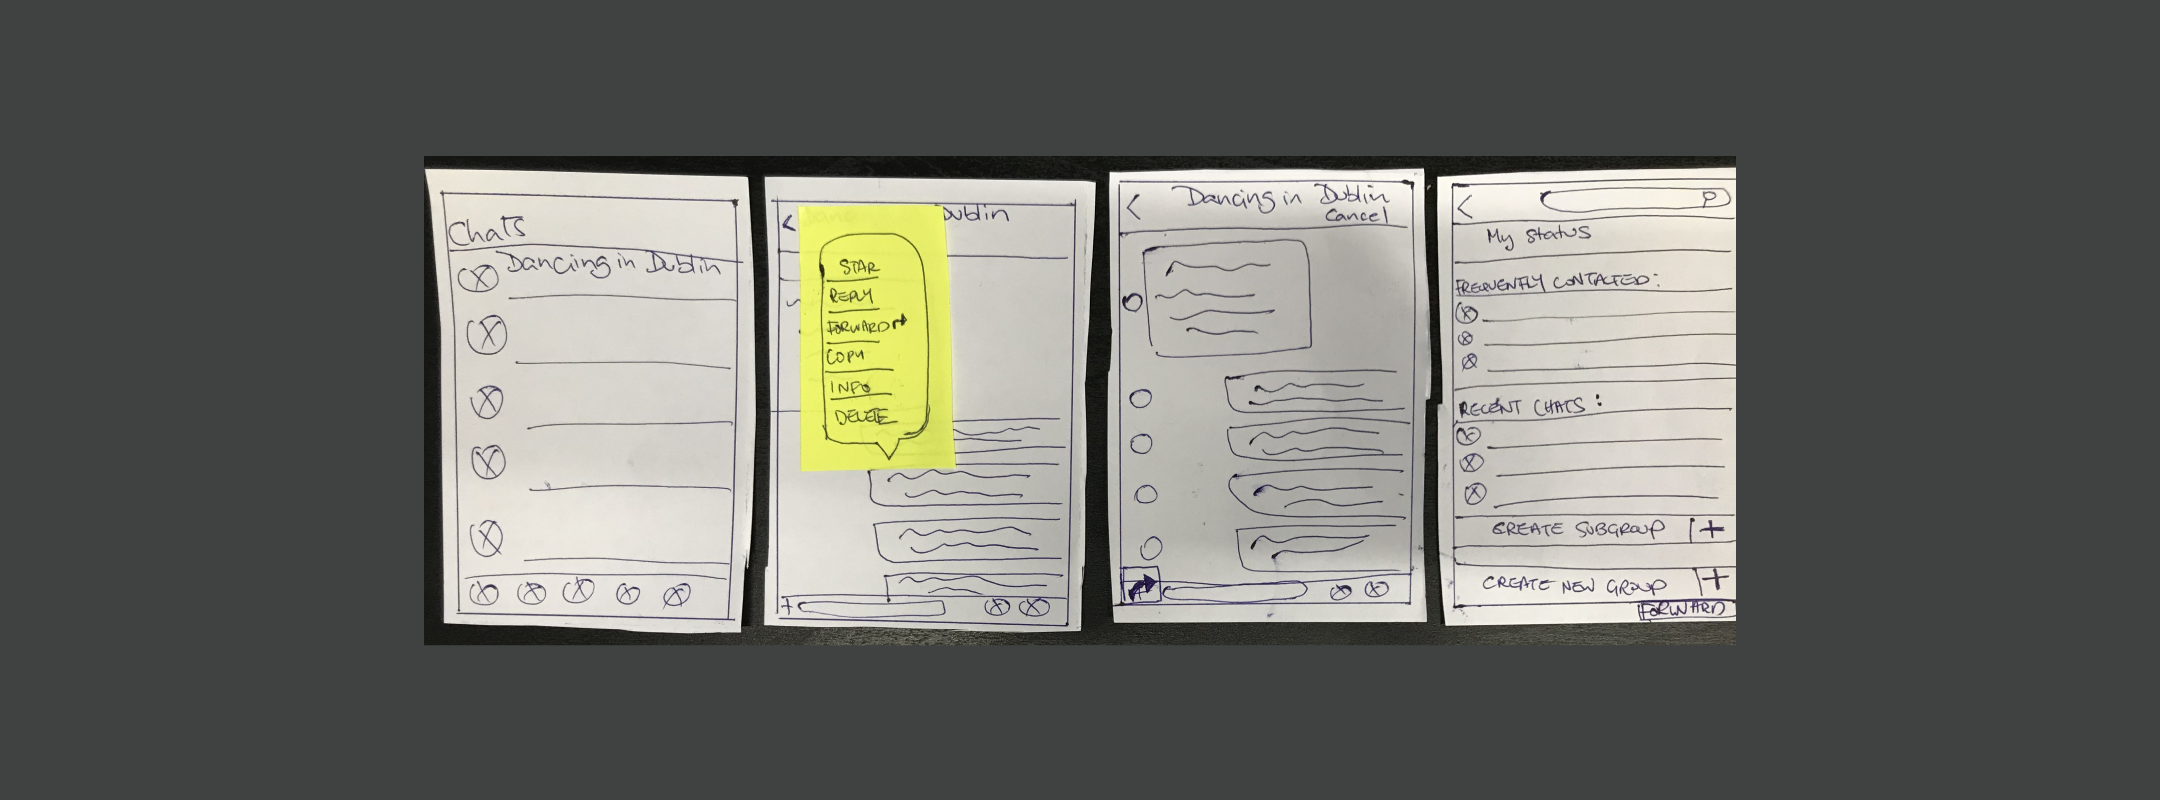 Chats
Dancing in Dublin
Dublin
STAR
REPLY
FORWARD
COPY
INFO
DELETE
Dancing in Dublin
Cancel
My Status
FREQUENTLY CONTACTED:
RECENT CHATS:
CREATE SUBGROUP +
CREATE NEW GROUP +
FORWARD